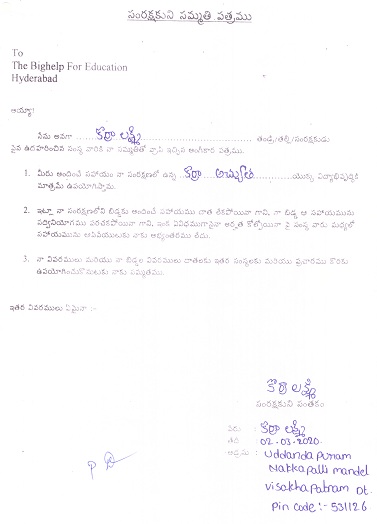 సంరక్షకుని సమ్మతి పత్రము
To
The Bighelp For Education
Hyderabad
అయ్యా!
నేను అనగా కొర్రా లక్ష్మి తండ్రి/తల్లి/సంరక్షకుడు
పైన ఉదహరించిన సంస్థ వారికి నా సమ్మతితో వ్రాసి ఇచ్చిన అంగీకార పత్రము.
1. మీరు అందించే సహాయం నా సంరక్షణలో ఉన్న కొర్రా అచ్యుత యొక్క విద్యాభివృద్ధికి
మాత్రమే ఉపయోగిస్తాము.
2. ఇట్లా నా సంరక్షణలోని బిడ్డకు అందించే సహాయము దాత లేకపోయినా గాని, నా బిడ్డ ఆ సహాయమును
సద్వినియోగము పరచకపోయినా గాని, ఇంక ఏవిధముగానైనా అర్హత కోల్పోయినా పై సంస్థ వారు మధ్యలో
సహాయమును ఆపివేయుటకు నాకు అభ్యంతరము లేదు.
3. నా వివరములు మరియు నా బిడ్డల వివరములు దాతలకు ఇతర సంస్థలకు మరియు ప్రచారము కొరకు
ఉపయోగించుకొనుటకు నాకు సమ్మతము.
ఇతర వివరములు ఏమైనా :-
కొర్రా లక్ష్మి
సంరక్షకుని సంతకం
పేరు : కొర్రా లక్ష్మి
తేది : 02-03-2020
అడ్రసు : Uddanda Puram
Nakkapalli mandel
Visakhapatnam Dt.
Pin code :- 531126